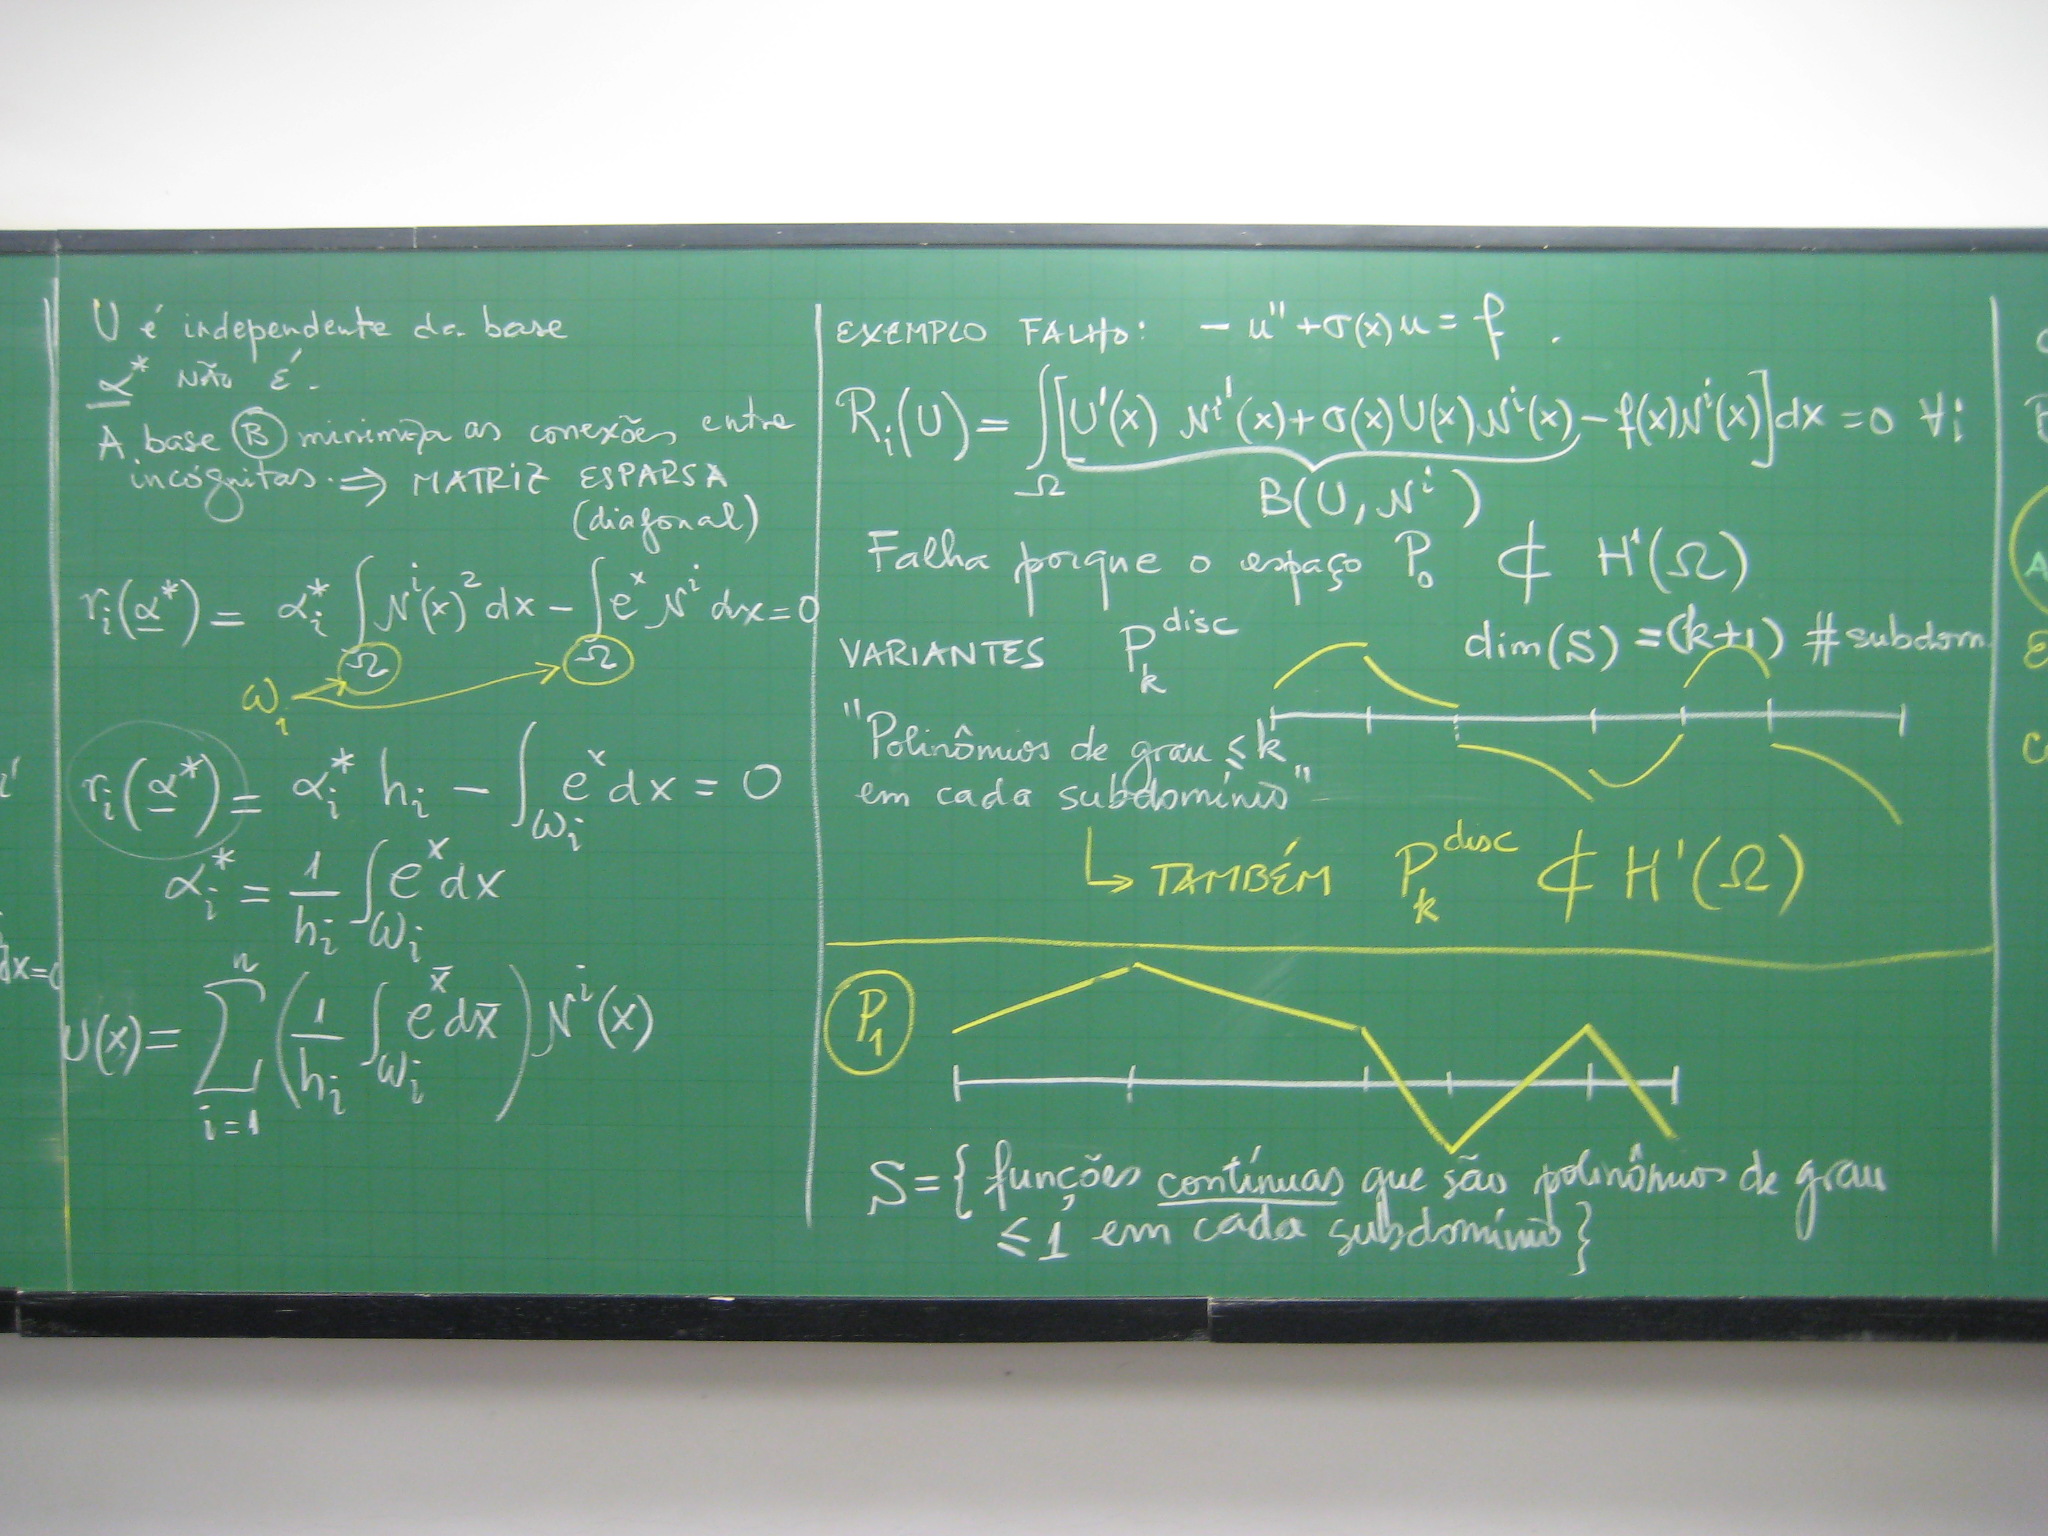 U é independente da base
α* NÃO É.
A base B minimiza as conexões entre
incógnitas. ⇒ MATRIZ ESPARSA
(diagonal)
r_i(α*) = α_i* ∫_Ω N^i(x)² dx − ∫_Ω e^x N^i dx = 0
ω_i
r_i(α*) = α_i* h_i − ∫_ω_i e^x dx = 0
α_i* = 1/h_i ∫_ω_i e^x dx
U(x) = Σ_{i=1}^{n} (1/h_i ∫_ω_i e^x̄ dx̄) N^i(x)
dx=0
EXEMPLO FALHO: − u'' + σ(x) u = f .
R_i(U) = ∫_Ω [U'(x) N^i'(x) + σ(x) U(x) N^i(x) − f(x) N^i(x)] dx = 0 ∀i
B(U, N^i)
Falha porque o espaço P_0 ⊄ H¹(Ω)
VARIANTES P_k^disc dim(S) = (k+1) # subdom.
"Polinômios de grau ≤ k
em cada subdomínio"
↳ TAMBÉM P_k^disc ⊄ H¹(Ω)
P_1
S = { funções contínuas que são polinômios de grau
≤ 1 em cada subdomínio }